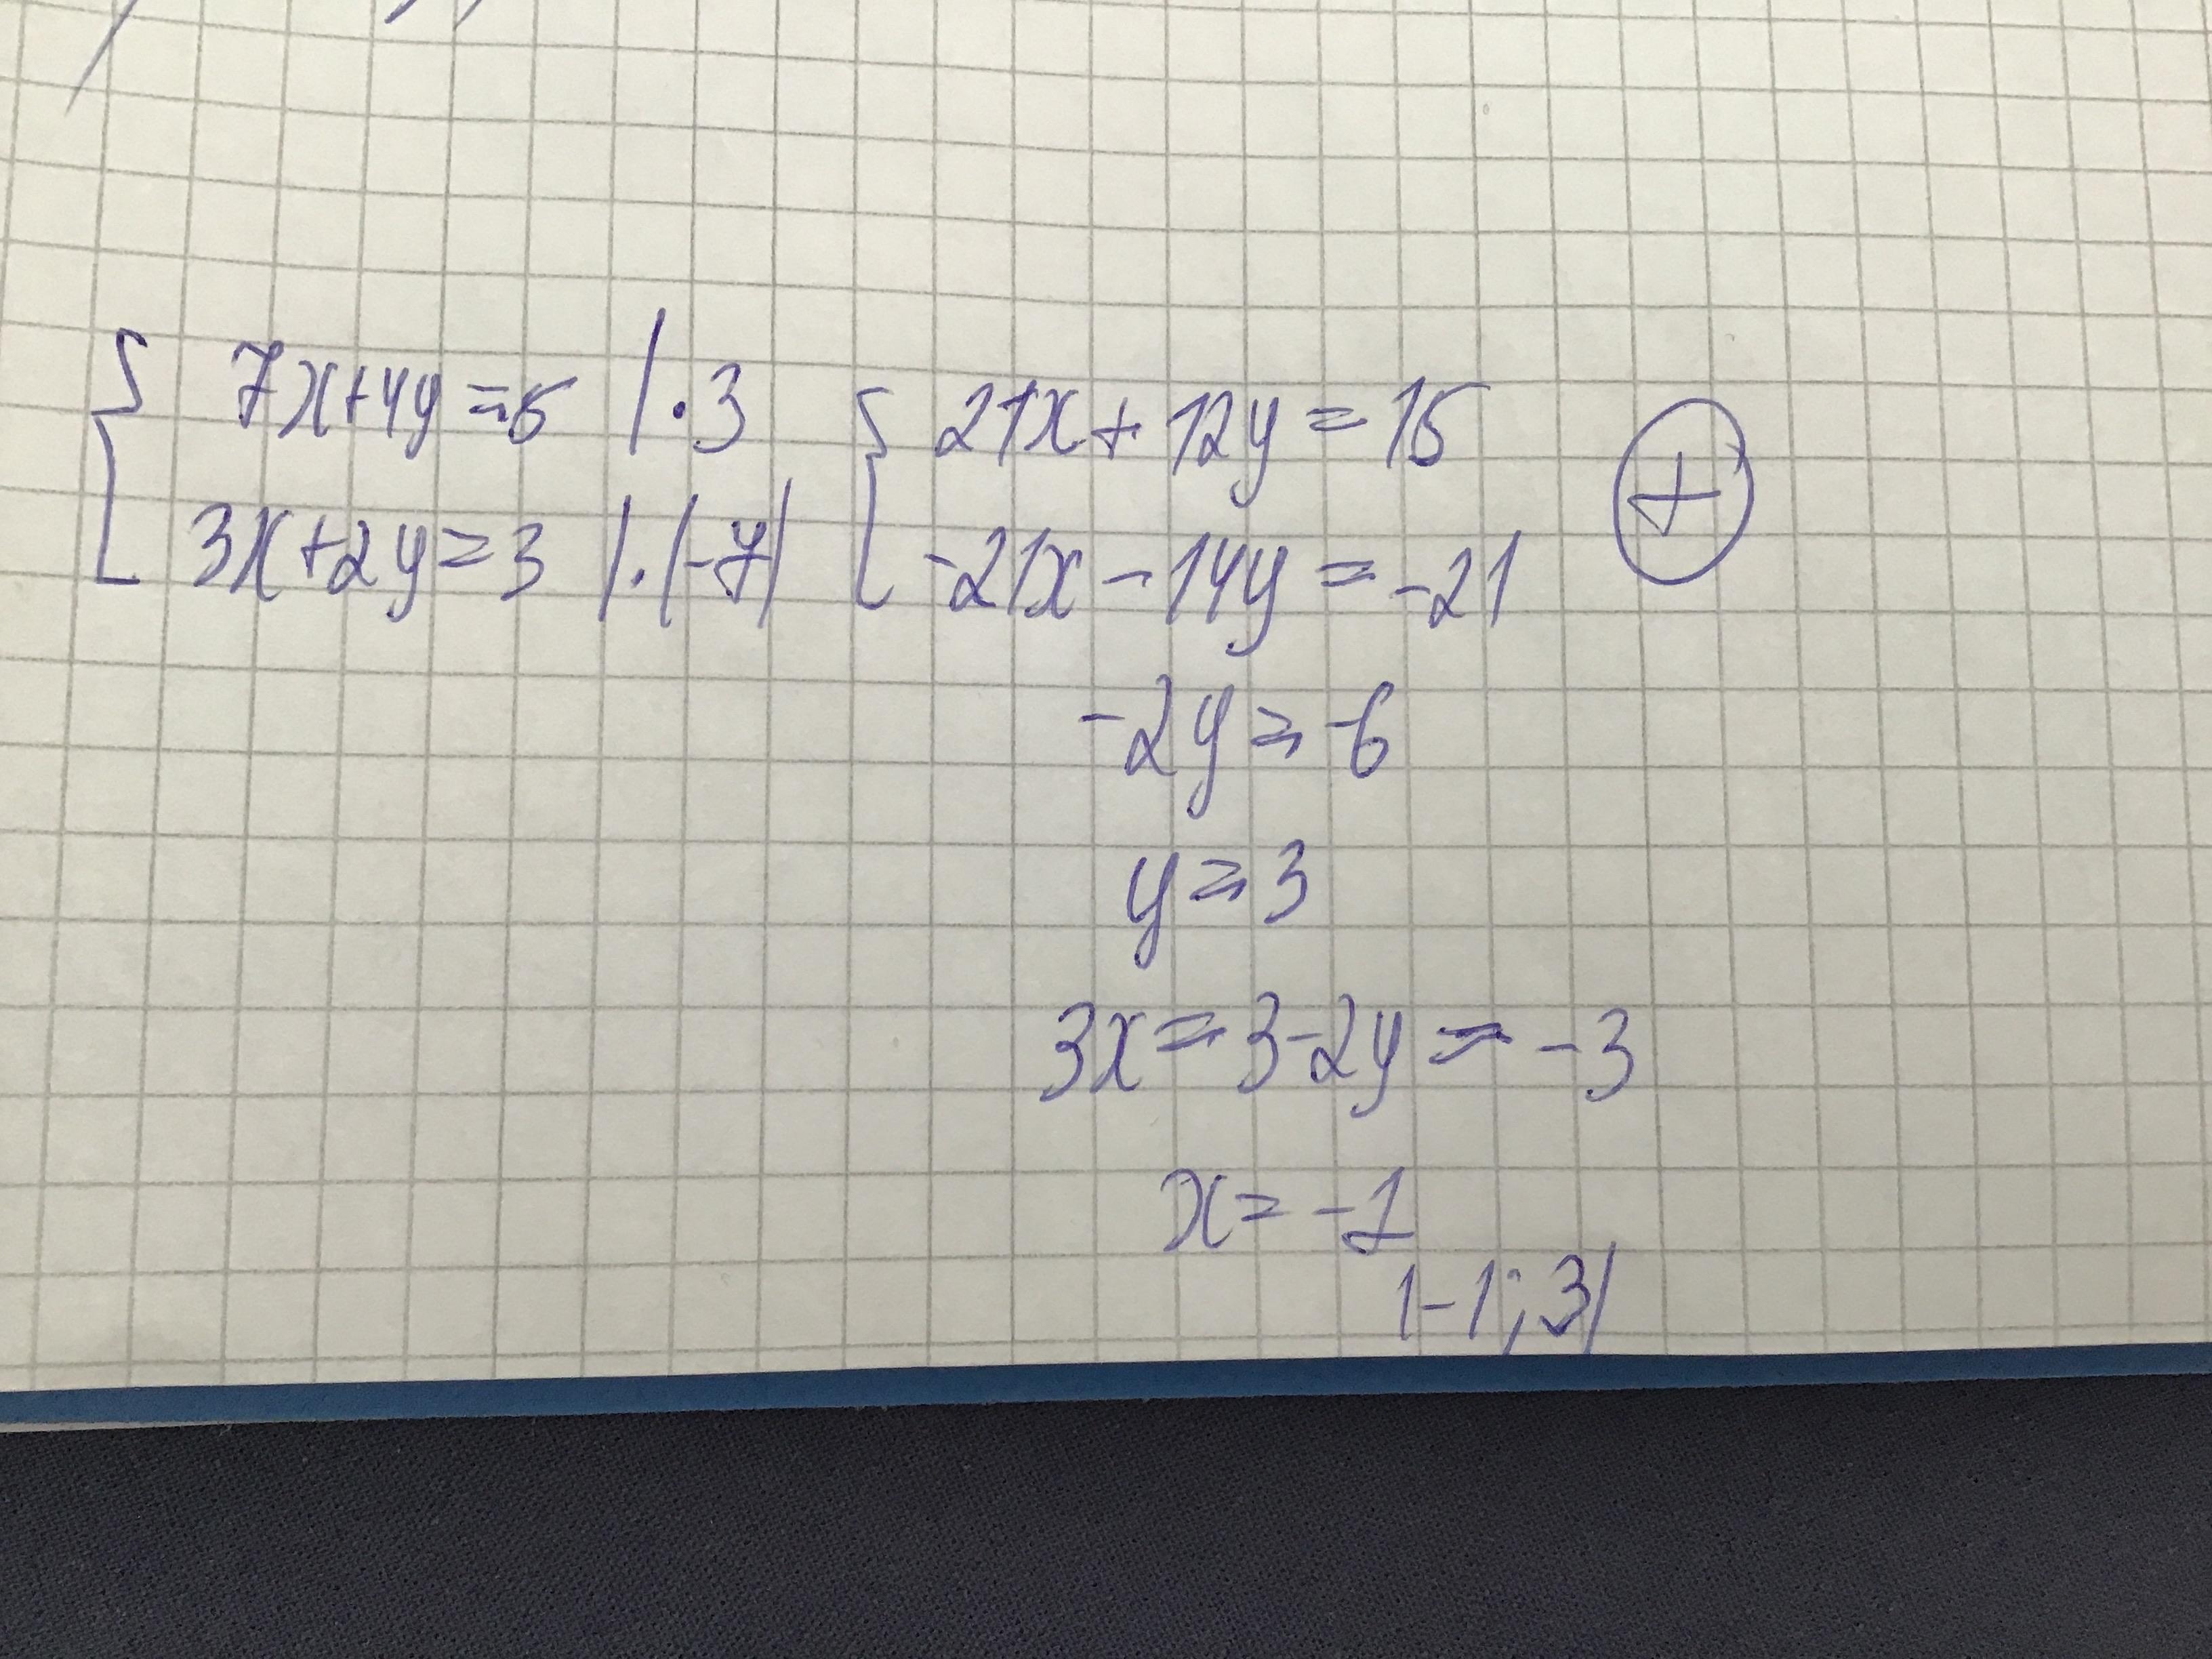 7x+4y=5 |·3
3x+2y=3 |·(-7)
21x+12y=15
-21x-14y=-21
+
-2y=-6
y=3
3x=3-2y=-3
x=-1
(-1;3)